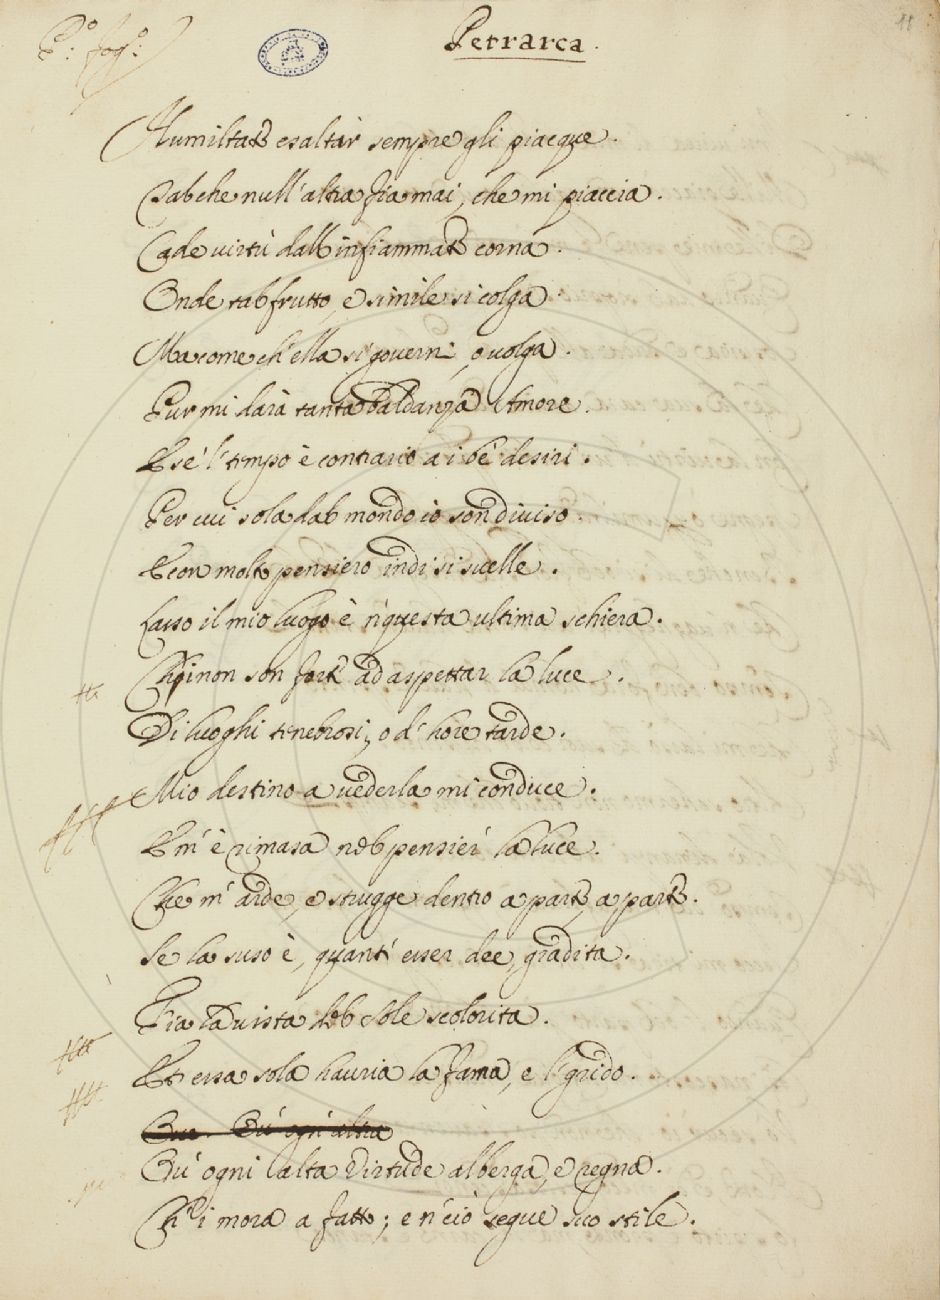 P.º fog.º:
Petrarca.
11
Humiltate esaltar sempre gli piacque.
Tal che null' altra fia mai, che mi piaccia.
Cade virtù dall' infiammate corna.
Onde tal frutto, e simile si colga
Ma come ch' ella si governi, o volga.
Pur mi darà tanta baldanza Amore.
E se 'l tempo è contrario a i be' desiri.
Per cui sola dal mondo io son diviso.
E con molto pensiero indi si svelle.
Lasso il mio luogo è 'n questa ultima schiera.
Ch'i non son forte ad aspettar la luce.
Di luoghi tenebrosi, o d' hore tarde.
Mio destino a vederla mi conduce.
E m' è rimasa nel pensier la luce.
Che m' arde, e strugge dentro a parte, a parte.
Se la suso è, quant' esser dee, gradita.
Fia la vista del Sole scolorita.
Et essa sola havria la fama, e 'l grido.
Ou' ogn' altra
Ou' ogni alta Virtude alberga, e regna.
Ch' i mora a fatto; e n' ciò segue suo stile.